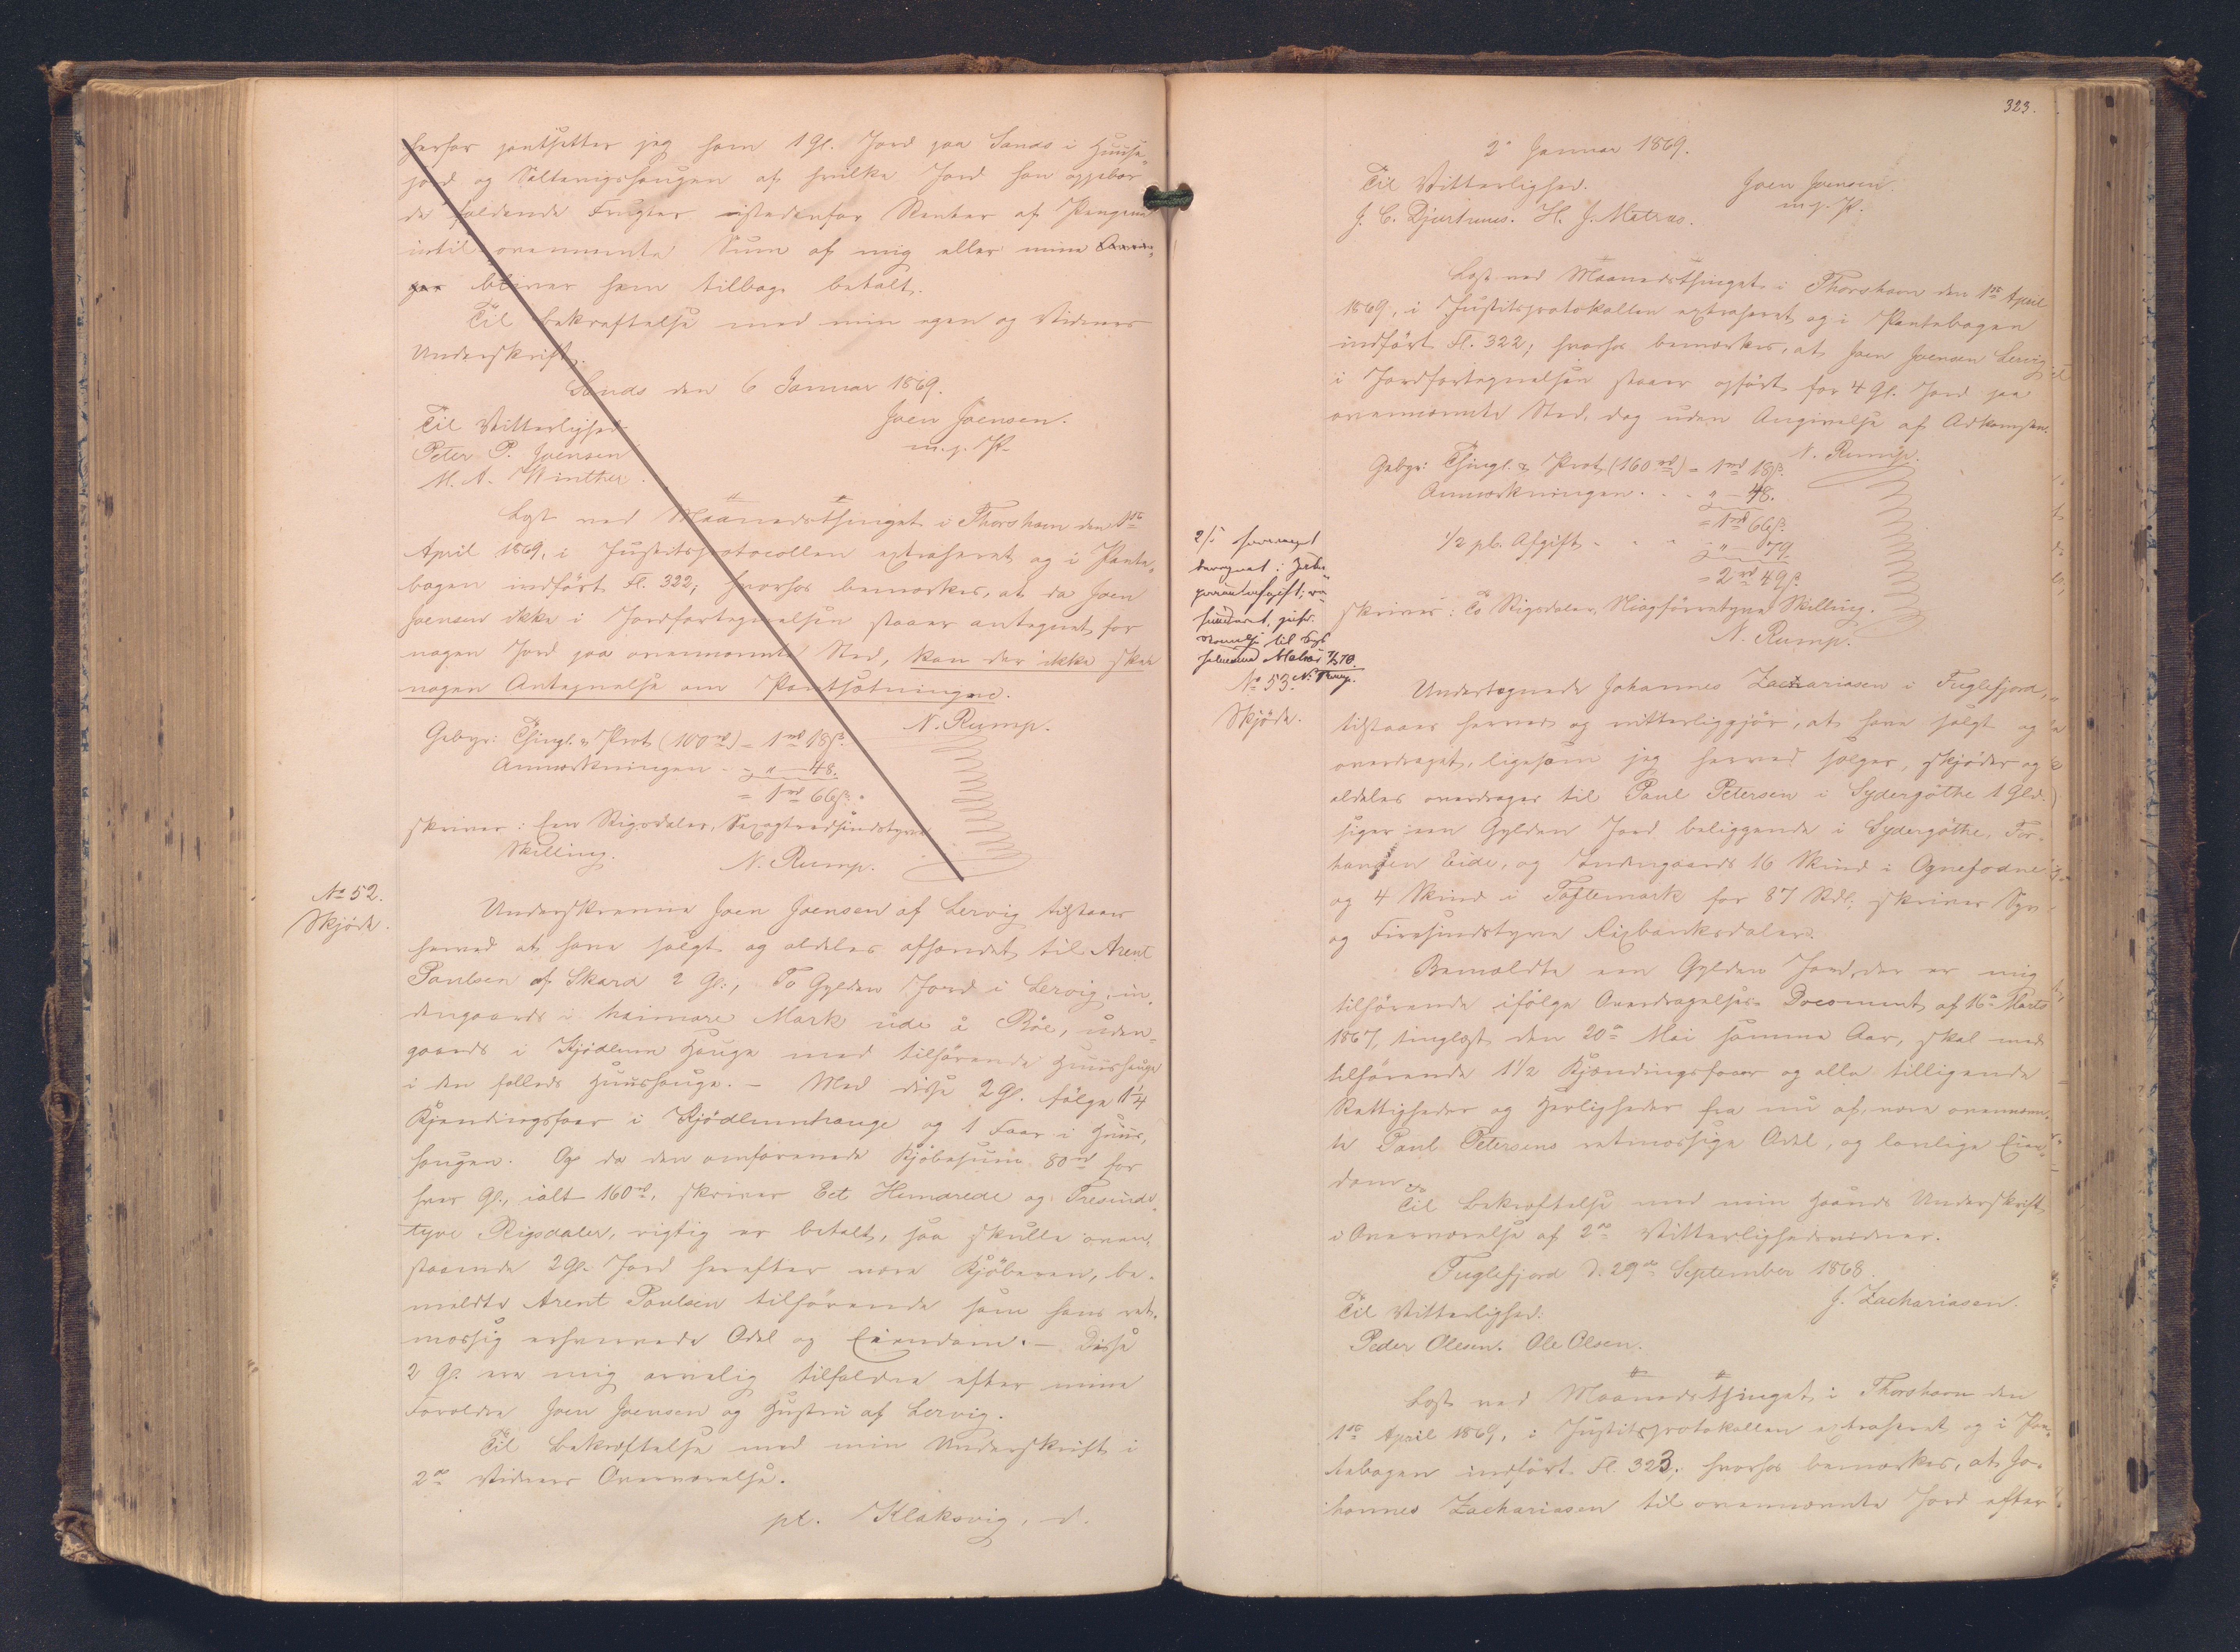 herfor pantsætter jeg ham 1 Gl. Jord paa Sands i Huuse-
jord og Søltuvigshaugen af hvilke Jord han oppebær
de faldende Frugter istedenfor Renter af Pengene
indtil ovennævnte Sum af mig eller mine Arvin-
ger bliver ham tilbage betalt.
Til Bekræftelse med min egen og Vidners
Underskrift.
Sands den 6 Januar 1869.
Til Vitterlighed
Joen Joensen.
Peter P. Joensen
m. f. P.
M. A. Winther.
Læst ved Maanedsthinget i Thorshavn den 1ste
April 1869, i Justitsprotocollen extraheret og i Pante-
bogen indført Fl. 322; hvorhos bemærkes, at da Joen
Joensen ikke i Jordfortegnelsen staaer antegnet for
nogen Jord paa ovennævnte Sted, kan der ikke skee
nogen Antegnelse om Pantsætningen.
N. Rump.
Gebyr: Thingl. & Prot. (100 rd) = 1 rd 18 ß.
Anmærkningen - " - 48.
= 1 rd 66 ß.
skriver: Een Rigsdaler, Sexogtredsindstyve
Skilling.
N. Rump.
No 52.
Skjøde.
Underskrevne Joen Joensen af Lervig tilstaaer
herved at have solgt og aldeles afhændet til Arent
Poulsen af Skard 2 Gl:, To Gylden Jord i Lervig, in-
dengaards i heimare Mark ude å Röe, uden-
gaards i Kjødlum Hauge med tilhørende Huushauge
i den fælleds Huushauge. - Med disse 2 Gl. følge 1 1/4
Kjendingsfaar i Kjødlumhauge og 1 Faar i Huus-
haugen. Og da den omforenede Kjøbesum 80 rd for
hver Gl., ialt 160 rd, skriver Eet Hundrede og Tresinds-
tyve Rigsdaler, rigtig er betalt, saa skulle oven-
staaende 2 Gl. Jord herefter være Kjøberen, be-
meldte Arent Poulsen tilhørende som hans ret-
mæssig erhvervede Odel og Eiendom. - Disse
2 Gl. ere mig arvelig tilfaldne efter mine
Forældre Joen Joensen og Hustru af Lervig.
Til Bekræftelse med min Underskrift i
2de Vidners Overværelse.
pt. Klaksvig, d.
323.
2. Januar 1869.
Til Vitterlighed.
Joen Joensen.
J. C. Djurhuus. H. J. Matras.
m. f. P.
Læst ved Maanedsthinget i Thorshavn den 1ste April
1869, i Justitsprotokollen extraheret og i Pantebogen
indført Fl. 322; hvorhos bemærkes, at Joen Joensen Lervig
i Jordfortegnelsen staaer opført for 4 Gl. Jord paa
ovennævnte Sted, dog uden Angivelse af Adkomsten.
N. Rump.
Gebyr: Thingl. & Prot. (160 rd) = 1 rd 18 ß.
Anmærkningen . . . " - 48.
= 1 rd 66 ß.
1/2 pC. Afgift . . . " - 79
= 2 rd 49 ß.
skriver: To Rigsdaler, Niogfyrretyve Skilling.
N. Rump.
No 53.
Skjøde.
Undertegnede Johannes Zachariasen i Fuglefjord,
tilstaaer herved og vitterliggjør, at have solgt og
overdraget, ligesom jeg herved sælger, skjøder og
aldeles overdrager til Paul Petersen i Sydergöthe 1 Gld.
siger een Gylden Jord beliggende i Sydergöthe, For-
handen Eide, og Indengaards 16 Skind i Ognefodne
og 4 Skind i Toftemark for 87 Rdl: skriver Syv
og Firesindstyve Rixbanksdaler.
Bemældte een Gylden Jord, der er mig
tilhørende ifølge Overdragelses-Document af 16de Marts
1867, tinglæst den 20de Mai samme Aar, skal med
tilhørende 1 1/2 Kjændingsfaar og alle tilligende
Rettigheder og Herligheder fra nu af, være ovennævn-
te Paul Petersens retmæssige Odel, og lovlige Eien-
dom.
Til Bekræftelse med min Haands Underskrift
i Overværelse af 2de Vitterlighedsvidner.
Fuglefjord d. 29de September 1868.
J. Zachariasen.
Til Vitterlighed:
Peder Olesen. Ole Olsen.
Læst ved Maanedsthinget i Thorshavn den
1ste April 1869, i Justitsprotokollen extraheret og i Pan-
tebogen indført Fl. 323; hvorhos bemærkes, at Jo-
hannes Zachariasen til ovennævnte Jord efter